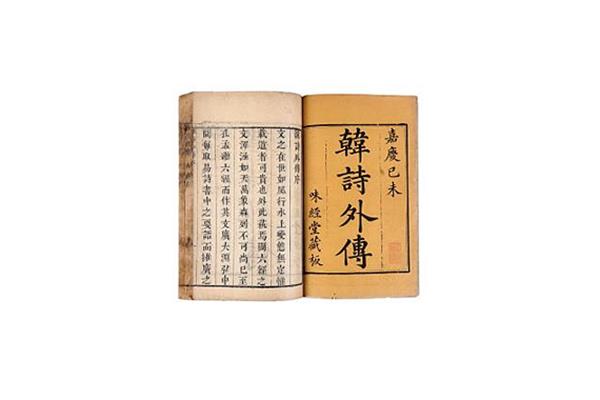 嘉慶己未
韓詩外傳
味經堂藏板
韓詩外傳序
文之在世如風行水上變態無定惟
載道者可貴也外此蔑焉六經之
文渾涵如天萬象森列不可尚已至
孔孟繼六經而作其文廣大淵弘中
間每取易詩書中之要語而推廣之